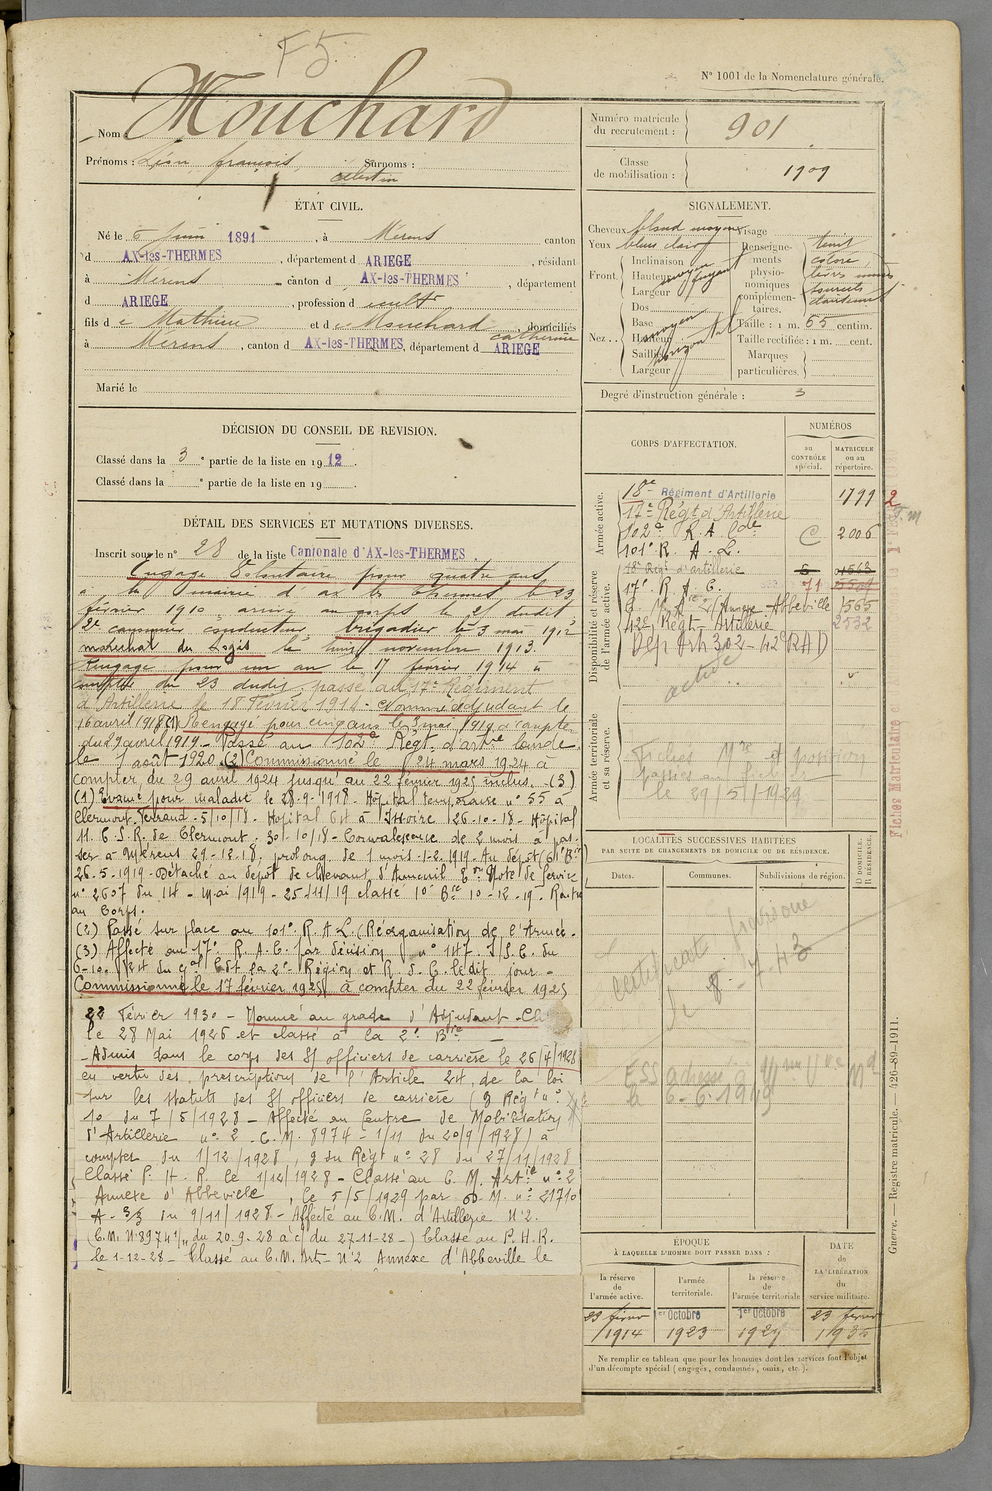 F5.
N° 1001 de la Nomenclature générale.
Nom : Mouchard
Prénoms : Léon françois Surnoms :
celestin
ÉTAT CIVIL.
Né le 6 Juin 1891, à Mérens canton
d AX-les-THERMES, département d ARIEGE, résidant
à Mérens canton d AX-les-THERMES, département
d ARIEGE, profession d cultr
fils d e Mathieu et d e Mouchard catherine, domiciliés
à Mérens, canton d AX-les-THERMES, département d ARIEGE
Marié le
DÉCISION DU CONSEIL DE REVISION.
Classé dans la 3 e partie de la liste en 1912.
Classé dans la e partie de la liste en 19 .
DÉTAIL DES SERVICES ET MUTATIONS DIVERSES.
Inscrit sous le n° 28 de la liste Cantonale d'AX-les-THERMES.
Engagé Volontaire pour quatre ans
à la mairie d'ax les Thermes, le 23
février 1910 arrivé au corps le 25 dudit
2e canonnier conducteur brigadier le 3 mai 1912
maréchal des Logis le huit novembre 1913.
Rengagé pour un an le 17 février 1914 à
compter du 23 dudit. passé au 17e Régiment
d'Artillerie le 18 Février 1914. Nommé adjudant le
16 avril 1918 (1) Rengagé pour cinq ans le 3 mai 1919 à compter
du 29 avril 1919. Passé au 102e Régt. d'artie lourde
le 1 août 1920. (2) Commissionné le 24 mars 1924 à
compter du 29 avril 1924 jusqu'au 22 février 1925 inclus. (3)
(1) Evacué pour maladie le 28-9-1918 - Hôpital temporaire n° 55 à
Clermont-Ferrand - 5/10/18 - Hôpital 64 à Issoire 26-10-18 - Hôpital
11. C.S.R. de Clermont. 30/10/18 - Convalescence de 2 mois à pas-
ser à Mérens 29-12-18. prolong. de 1 mois 1-2-1919. Au dépôt (61e Bie)
26-5-1919. Détaché au dépôt de chevaux d' Note de Service
n° 2607 du 14 - Mai 1919 - 25/11/19 classé 10e Bie 10-12-19. Rentré
au Corps.
(2) Passé sur place au 101e R.A.L. (Réorganisation de l'Armée.
(3) Affecté au 17e R.A.C. par décision n° 147. du
6-10-1924 du gal Cdt la 2e Région et R. d. C. ledit jour -
Commissionné le 17 février 1925, à compter du 22 février 1925
22 Février 1930 - Nommé au grade d'Adjudant-Ch
le 28 Mai 1926 et classé à la 2e Btrie
- Admis dans le corps des S/ officiers de carrière le 26/4/1928
en vertu des prescriptions de l'Article 24, de la loi
sur les statuts des S/ officiers de carrière (g Régt n°
10 du 7/5/1928 - Affecté au Centre de Mobilisation
d'Artillerie n° 2 C.M. 8974 - 1/11 du 20/9/1928) à
compter du 1/12/1928, g du Régt n° 28 du 27/11/1928
Classé P. H. R. le 1/12/1928 - Classé au C. M. Artie n° 2
Annexe d'Abbeville, le 5/5/1929 par M. n° 21710
A - 3/3 du 9/11/1928 - Affecté au C.M. d'Artillerie N°2.
(C.M. N° 8974 1/11 du 20-9-28 à c/ du 27-11-28-) Classé au P.H.R.
le 1-12-28 - Classé au C.M. Art- N°2 Annexe d'Abbeville le
Numéro matricule du recrutement : 901
Classe de mobilisation : 1909
SIGNALEMENT.
Cheveux blond moyen Visage
Yeux bleus clairs
Front. Inclinaison
Hauteur moyen
Largeur moyen
Nez... Dos
Base moyen
Hauteur
Saillie
Largeur
Renseignements physionomiques complémentaires.
teint
coloré
lèvres minces
sourcils
Taille : 1 m. 65 centim.
Taille rectifiée : 1 m. cent.
Marques particulières.
Degré d'instruction générale : 3
CORPS D'AFFECTATION.
NUMÉROS
au CONTRÔLE spécial.
MATRICULE ou au répertoire.
Armée active.
18e Régiment d'Artillerie 1799 2
17e Régt d'Artillerie
102e R.A. Lde C 2006
101e R. A. L.
Disponibilité et réserve de l'armée active.
18e Régt d'artillerie 6 1563
17e R. A. C. 71 5509
C. M. Artie 2 (Annexe Abbeville 1565
42e Régt Artillerie 2532
Dép Art 302 - 42e RAD
active
Armée territoriale et sa réserve.
Fiches Mle et position
passées au fichier
le 29/5/1929
Fiches Matriculaire
LOCALITÉS SUCCESSIVES HABITÉES
PAR SUITE DE CHANGEMENTS DE DOMICILE OU DE RÉSIDENCE.
Dates. Communes. Subdivisions de région.
D DOMICILE. R RÉSIDENCE.
certificat provisoire
du 8 - 7 43
ESS adressé à
le 6-6-1949
ÉPOQUE
À LAQUELLE L'HOMME DOIT PASSER DANS :
la réserve de l'armée active.
l'armée territoriale.
la réserve de l'armée territoriale
DATE de LA LIBÉRATION du service militaire.
23 février 1914
1er Octobre 1923
1er Octobre 1929
23 février 1935
Ne remplir ce tableau que pour les hommes dont les services font l'objet
d'un décompte spécial (engagés, condamnés, omis, etc.).
Guerre. — Registre matricule. — 426-89-1911.